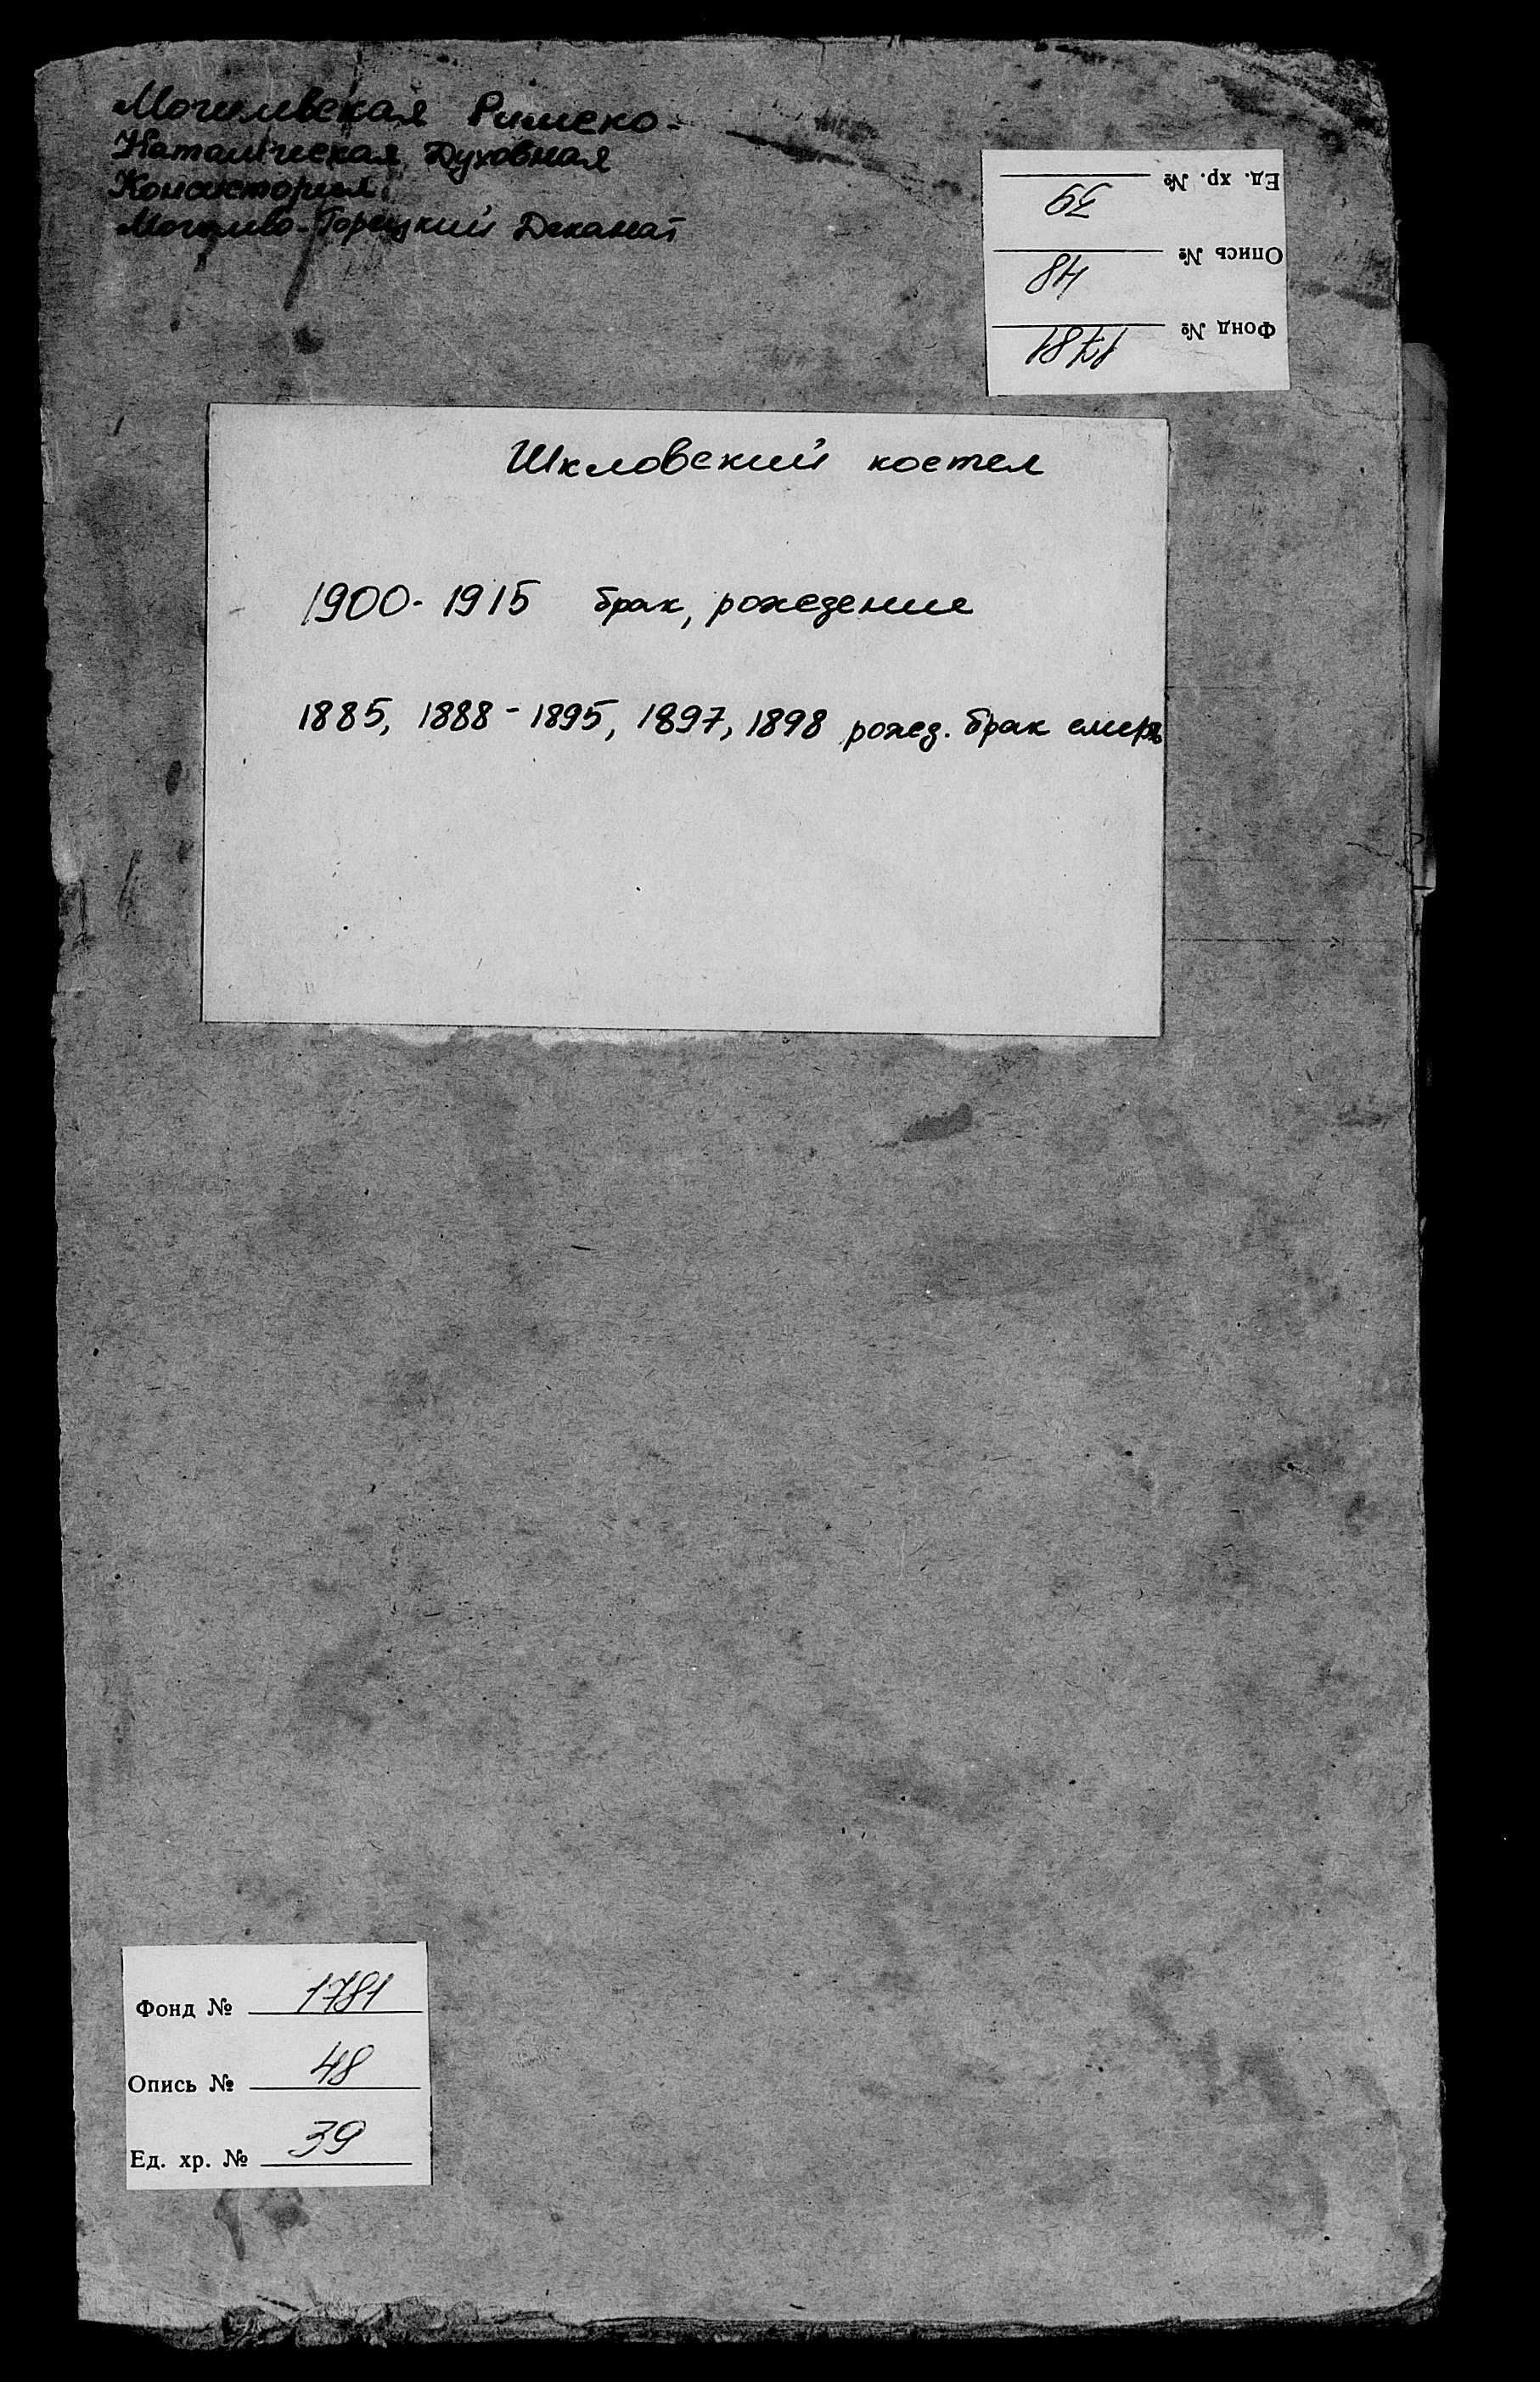 Могилевская Римско-
Католическая Духовная
Консистория
Могилево-Горецкий Деканат
Ед. хр. № 39
Опись № 48
Фонд № 1781
Шкловский костел
1900-1915 брак, рождение
1885, 1888-1895, 1897, 1898 рожд. брак смерть
Фонд № 1781
Опись № 48
Ед. хр. № 39